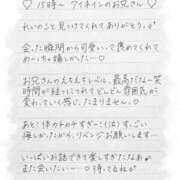 ♡ 15時〜 アイネインのお兄さん ♡
れいのこと見つけてくれてありがとう。
会った瞬間から可愛いって褒めてくれて
めーっちゃ嬉しかったー♡
お兄さんのえちえちレベル、最高だなー笑
時間が経ってくれてどんどん雰囲気が
変わっていく感じ、たまりません。♡
あと！体のナカすぎー！(笑) すごい
悔しかったから、リベンジお願いします…
いっぱいお話できて楽しすぎたなぁ
また会いたいーー♡待ってるね♡